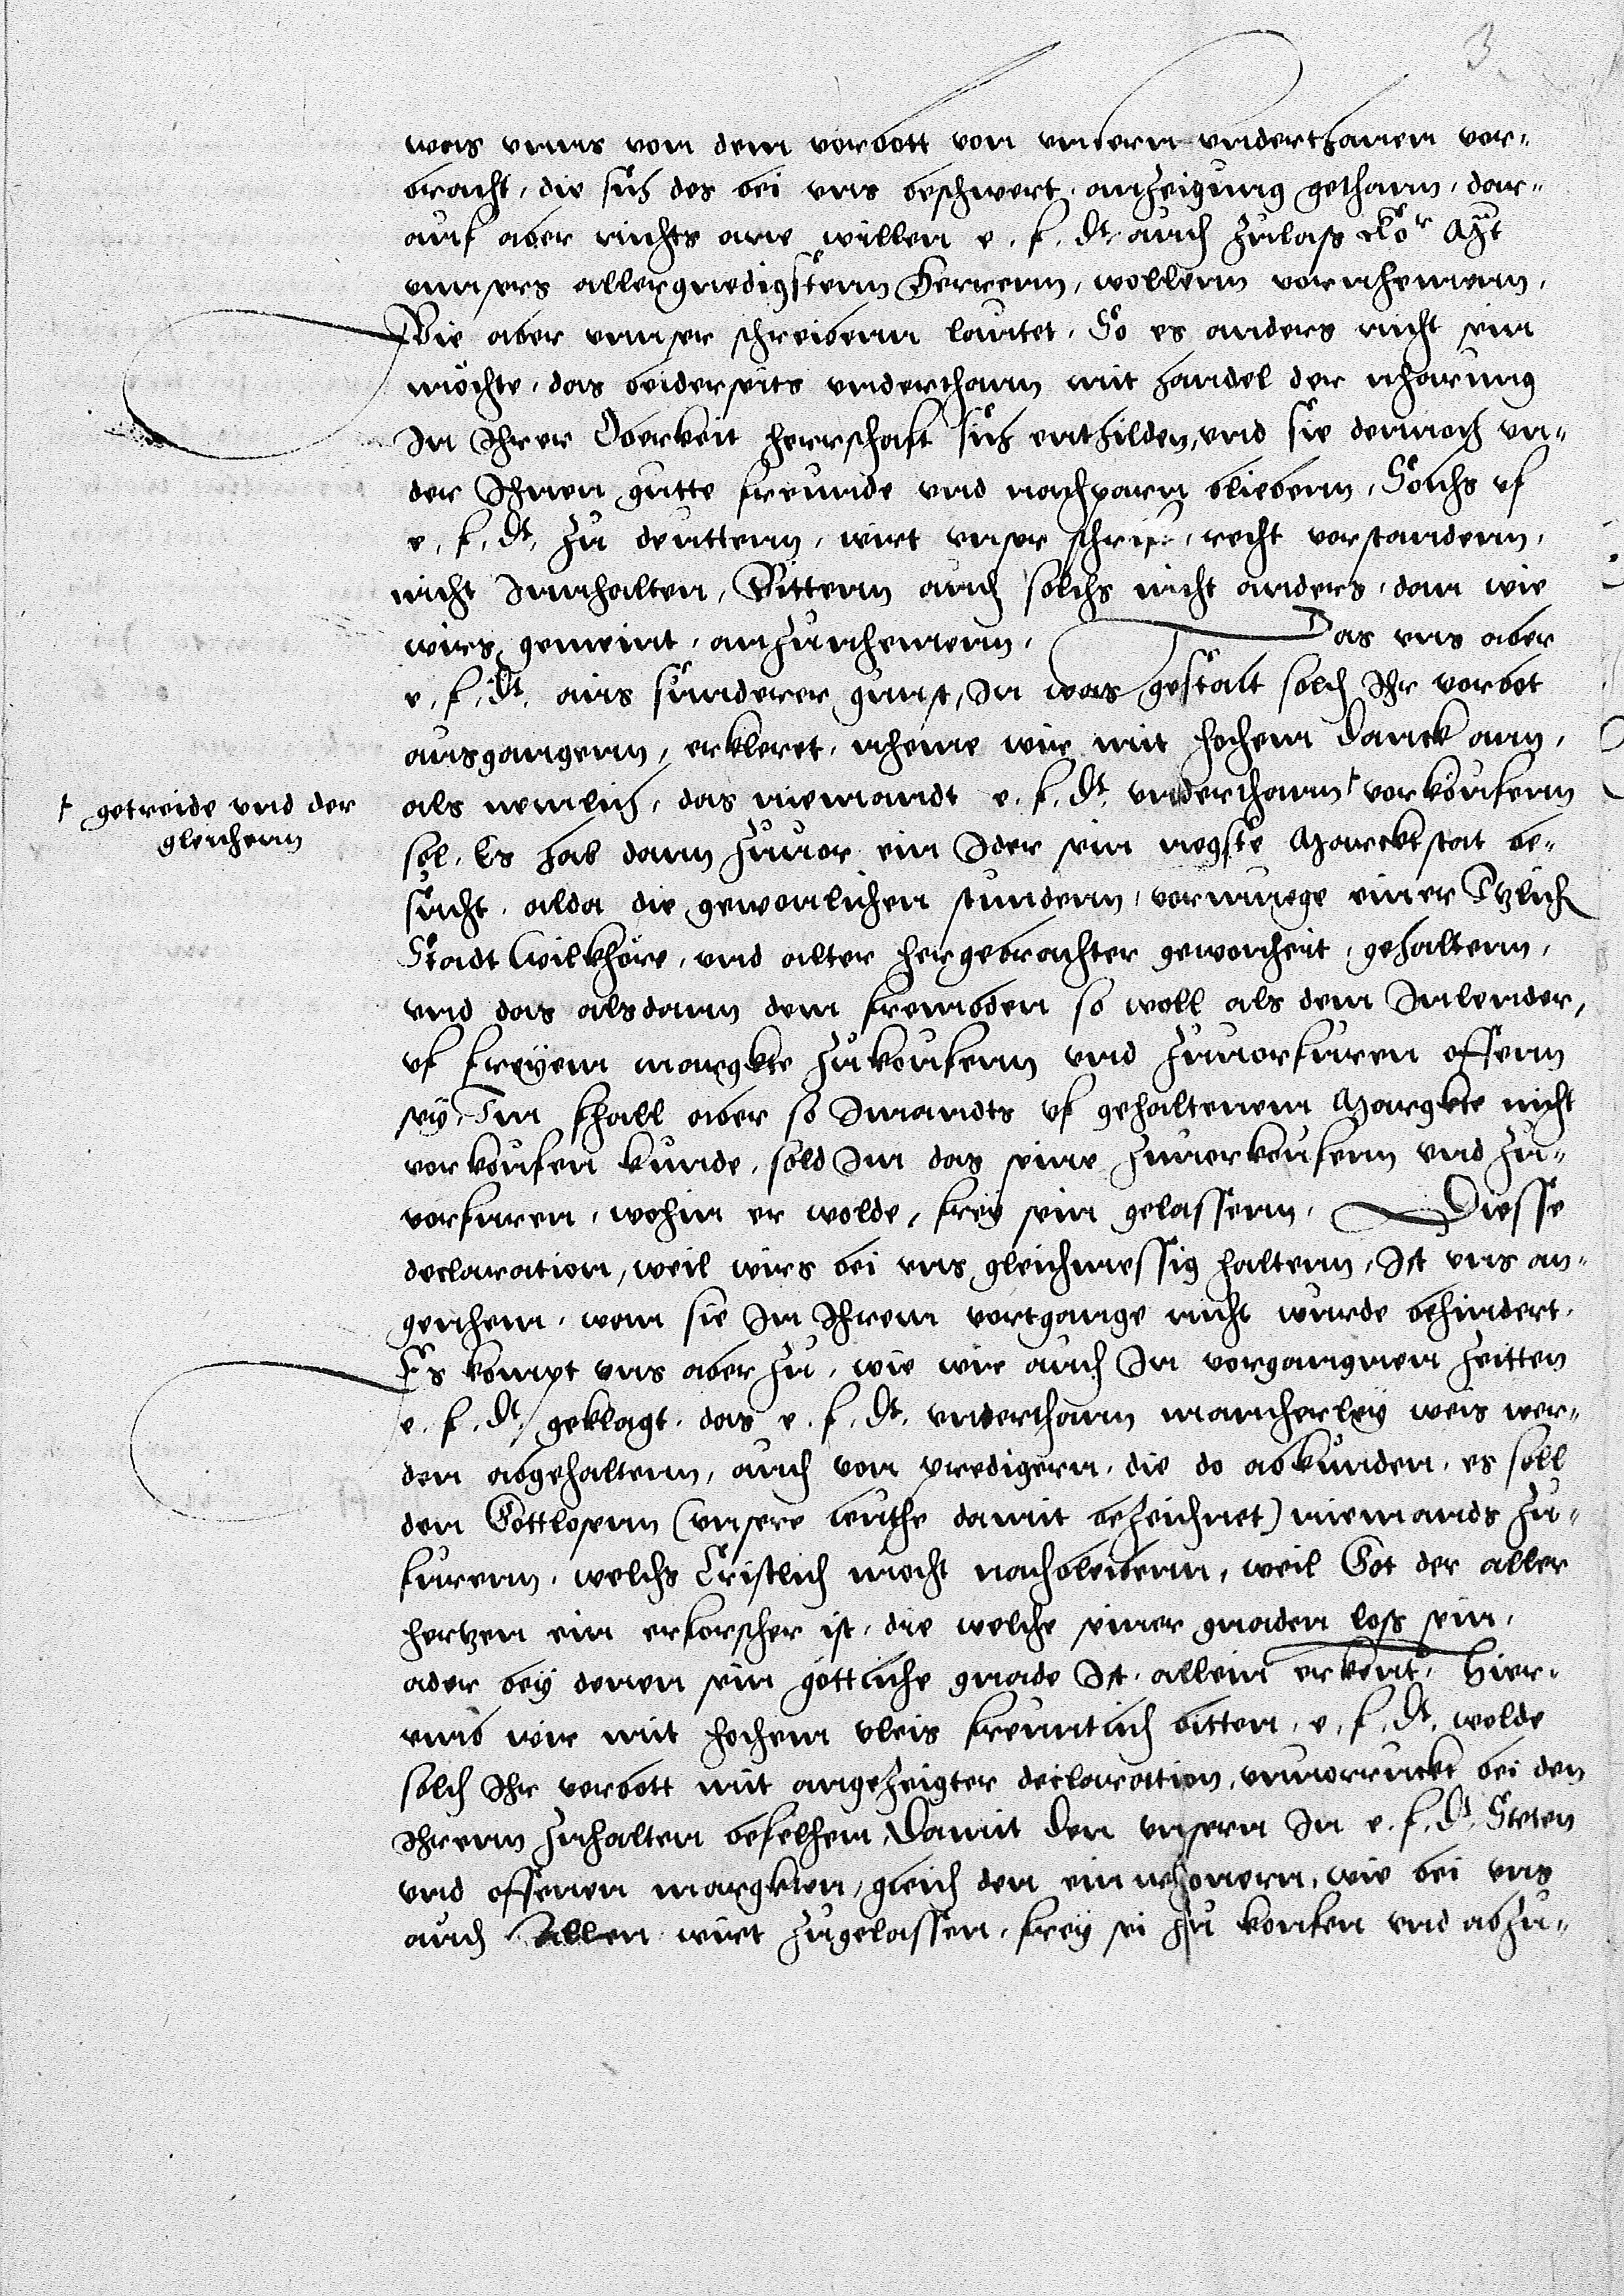 3
was vnns von dem vorbott von vnsern vnderthanen vor-
bracht, die sich des bei vns beschwert, anzeigung gethann, dar-
auf aber nichts ane willen e. f. Dt. auch zulass Kor Mt
vnnsers allergnedigstenn Herrenn, wollenn vornhemenn,
Wie aber vnnser schreibenn lautet, So es anders nicht sein
möchte, das beiderseits vnderthann mit handel der nharung
In Ihrer Oberkeit herrschaft sich enthilden, vnd sie dennoch vn-
der Ihnen gutte freunde vnd nachparn bliebenn, Sölchs vf
e. f. Dt. zu deuttenn, wirt vnser schrift, recht vorstandenn,
nicht Innhalten, Bittenn auch solchs nicht anders, dan wie
wirs gemeint, anzunhemenn, Das vns aber
e. f. Dt. aus sunderer gunst, In was gestalt solch Ihr vorbot
ausgangenn, erkleret, nheme wir mit hochem Danck ann,
als nemlich, das niemandt e. f. Dt. vnderthann † vorkoufenn
† getreide vnd der
gleichenn
sol, Es hab dann zuuor ein Ider sein negste Marcktstat be-
sucht, alda die gewonlichen stundenn, vormuege einer Itzlich
Stadt wilkhöre, vnd alter hergebrachter gewonheit, gehaltenn,
vnd das alsdann dem frembden so woll als dem Inlender,
vf freyem margkte zukoufenn vnd zuuorfuren offenn
sey, Im fhall aber so Imandts vf gehaltenem Margkte nicht
vorkoufen kunde, sold Im das seine zuuorkoufenn vnd zu-
vorfuren, wohin er wolde, frey sein gelassenn, Diesse
declaration, weil wirs bei vns gleichmessig haltenn, Ist vns an-
genhem, wan sie In Ihrem vortgange nicht wurde behindert.
Es kompt vns aber zu, wie wir auch In vorgangnen zeitten
e. f. Dt. geklagt, das e. f. Dt. vnderthann mancherley weis wer-
den abgehaltenn, auch von predigern, die do abkunden, es soll
den Gottlosenn (vnsere leuthe damit bezeichnet) niemands zu-
furenn, welchs Cristlich mocht nachbleibenn, weil Got der aller
hertzen ein erforscher ist, die welche seiner gnaden loss sein,
ader bey denen sein göttliche gnade Ist, allein erkent, Hier-
vmb wir mit hochem vleis freuntlich bitten, e. f. Dt. wolde
solch Ihr vorbott mit angezeigter declaration, vnuorruckt bei den
Ihrenn zuhalten befelhen, Damit den vnsern In e. f. Dt. Steten
vnd offenen margkten, gleich den einwhonern, wie bei vns
auch Allen wirt zugelassen, frey sei zu koufen vnd abzu-